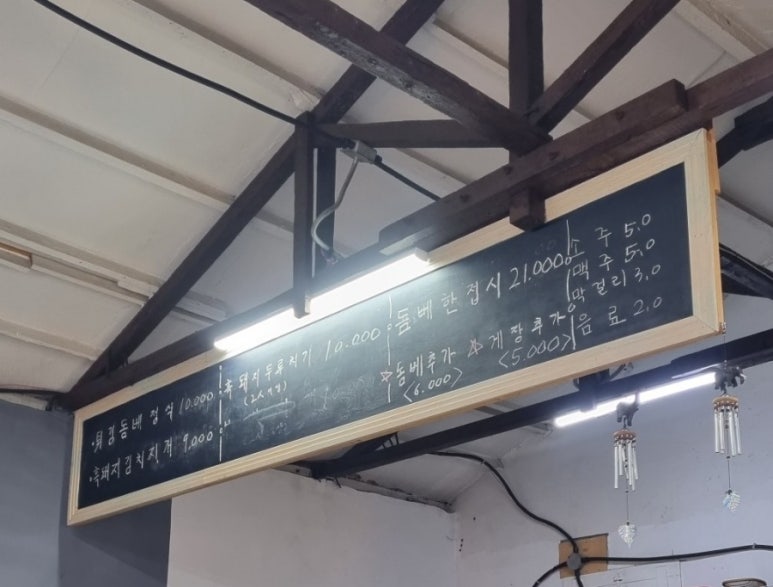 돔베정식 10.000
흑돼지김치찌개 9.000
흑돼지두루치기 10.000
돔베한접시 21.000
☆돔베추가
<6.000>
☆게장추가
<5.000>
소주 5.0
맥주 5.0
막걸리 3.0
음료 2.0